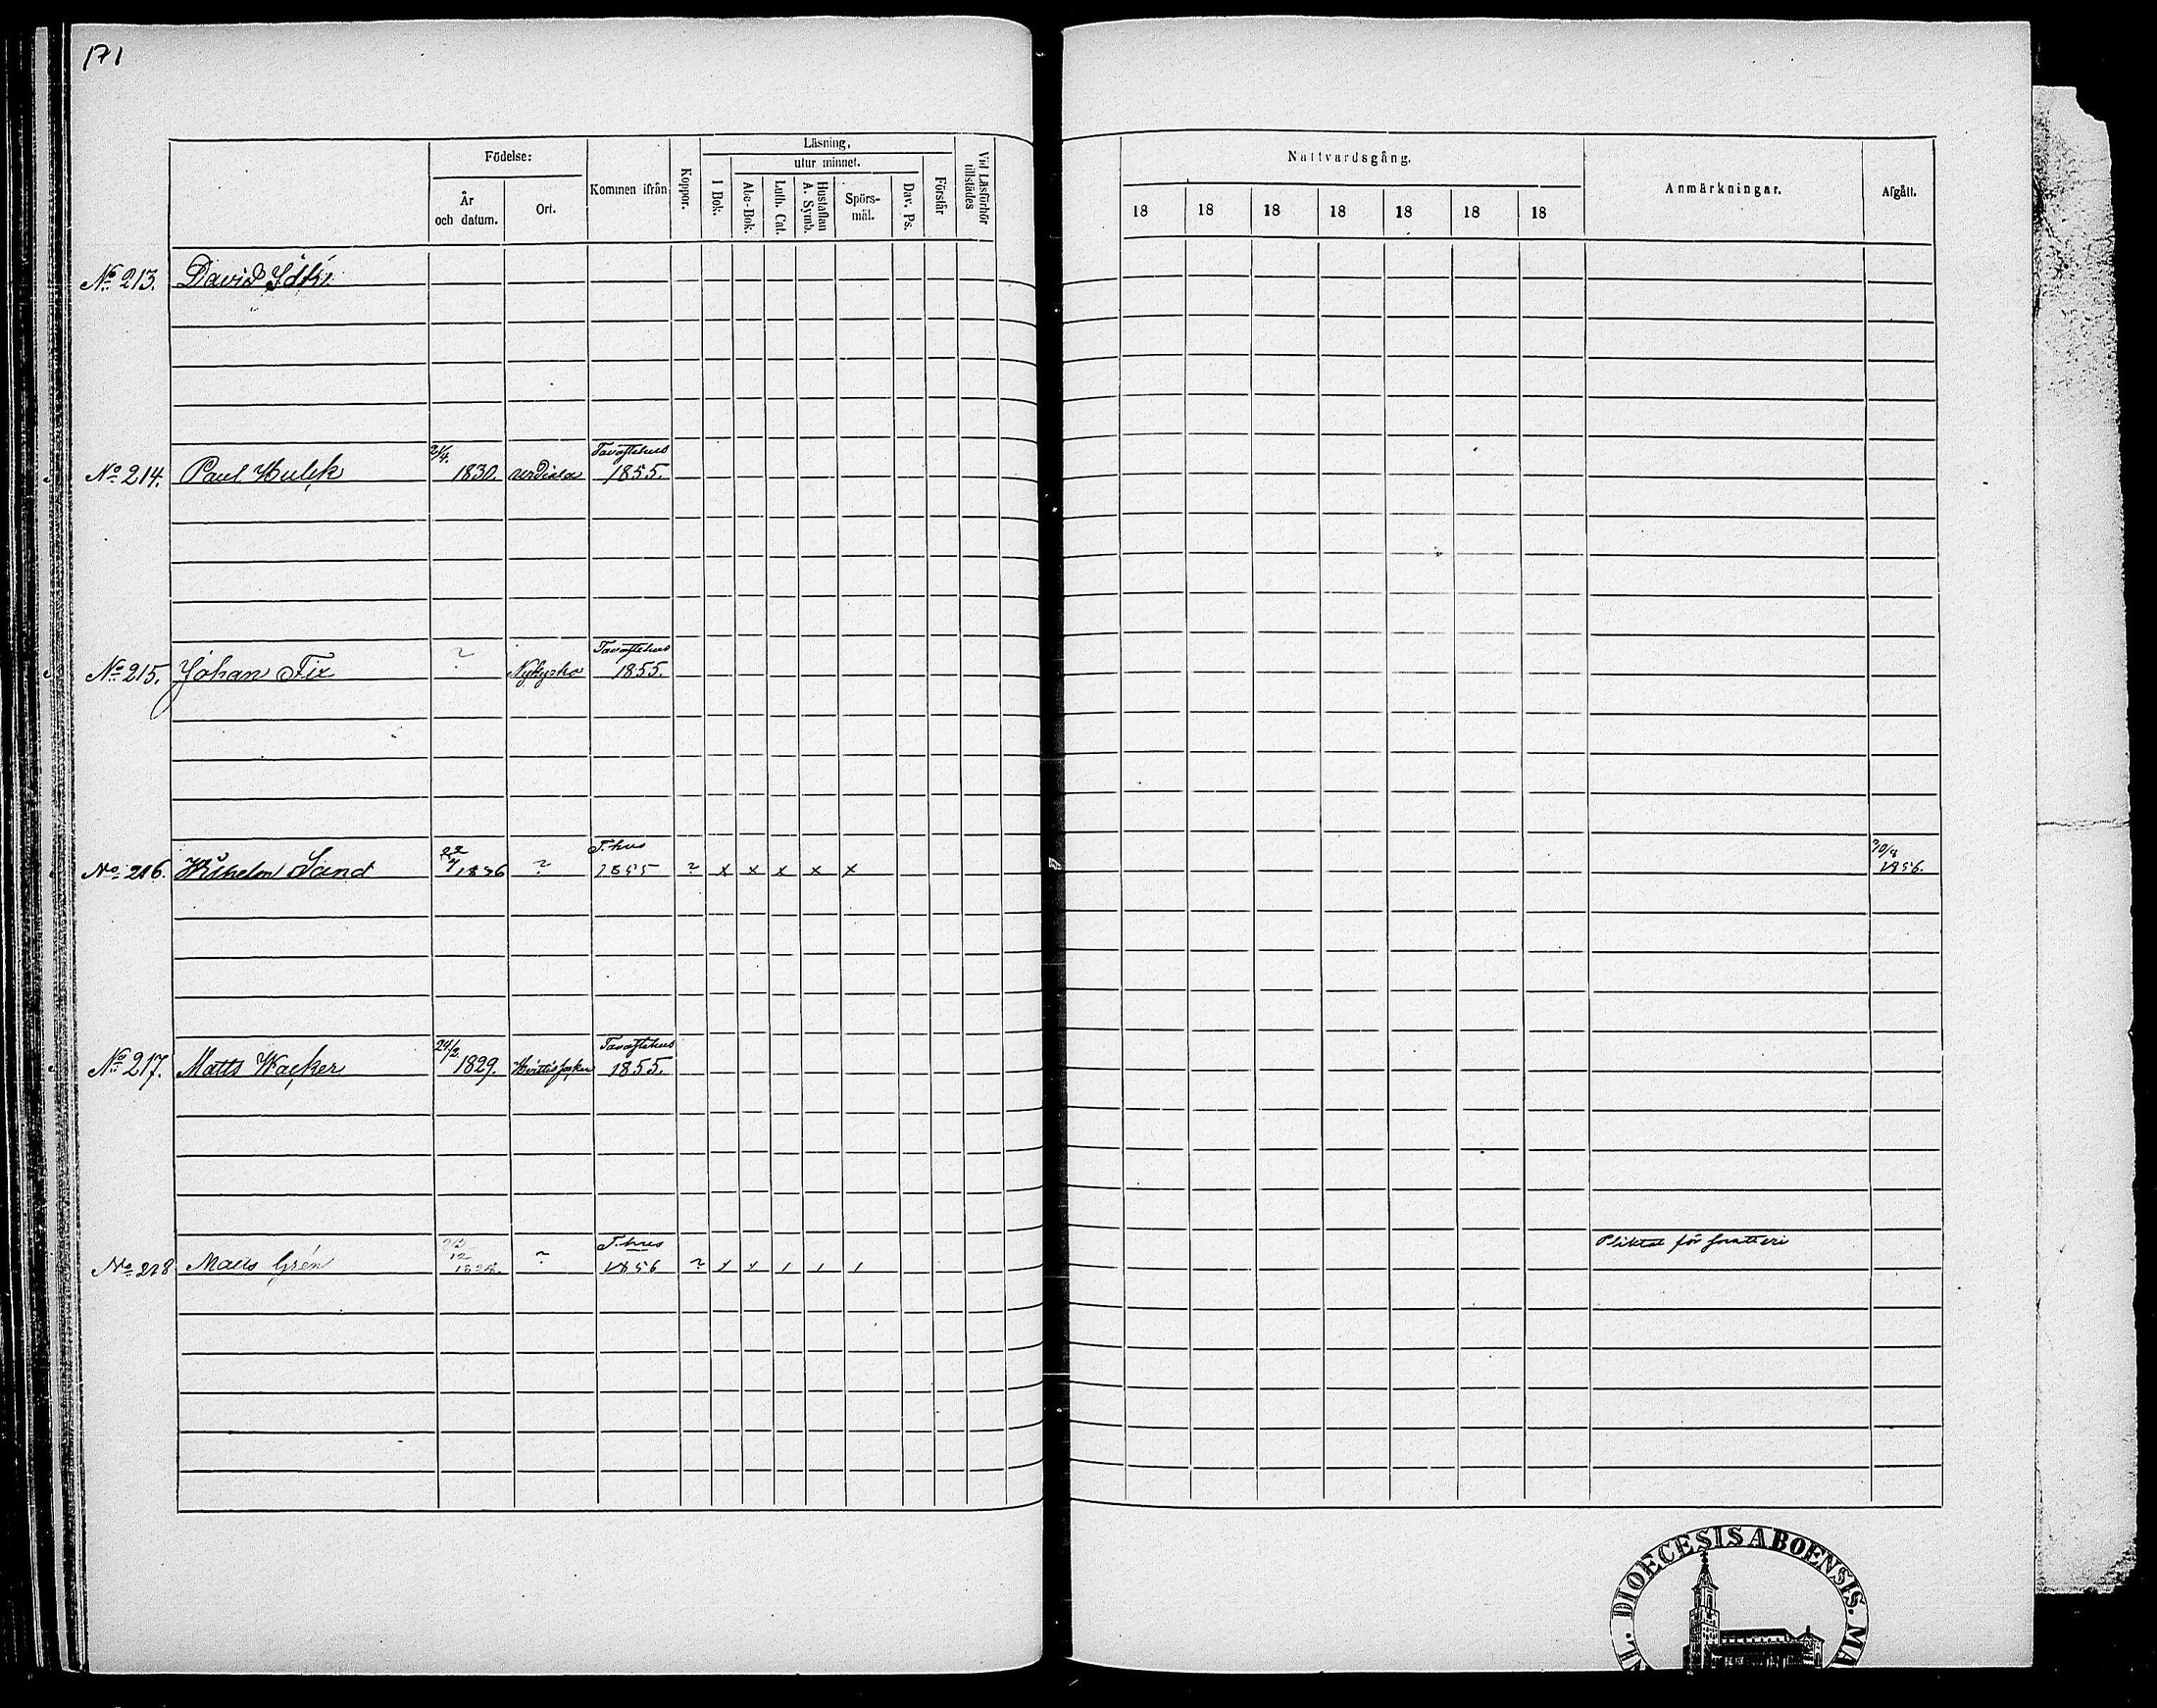 171
Födelse: Kommen ifrån Koppor. Läsning, Vid Läsförhör tillstädes
År och datum. Ort. I Bok. utur minnet. Förstår
Abc-Bok. Luth. Cat. Hustaflan A. Symb. Spörs-mål. Dav. Ps.
Nattvardsgång. Anmärkningar. Afgått.
18 18 18 18 18 18 18
No 213. David
Tavastehus
No 214. Paul Hulek 1830. Urdiala 1855.
? Tavastehus
No 215. Johan Fix Nykyrko 1855.
22 T.hus 30/8
No 216. Wilhelm Sand 1836 ? 1855 ? x x x x x 1856.
24/2 Tavastehus
No 217. Matts Wacker 1829. 1855.
12 T.hus Pliktat för snatteri
No 218 Matts Grén ? 1856 ? x x / / /
DIOECESIS ABOENSIS. MA